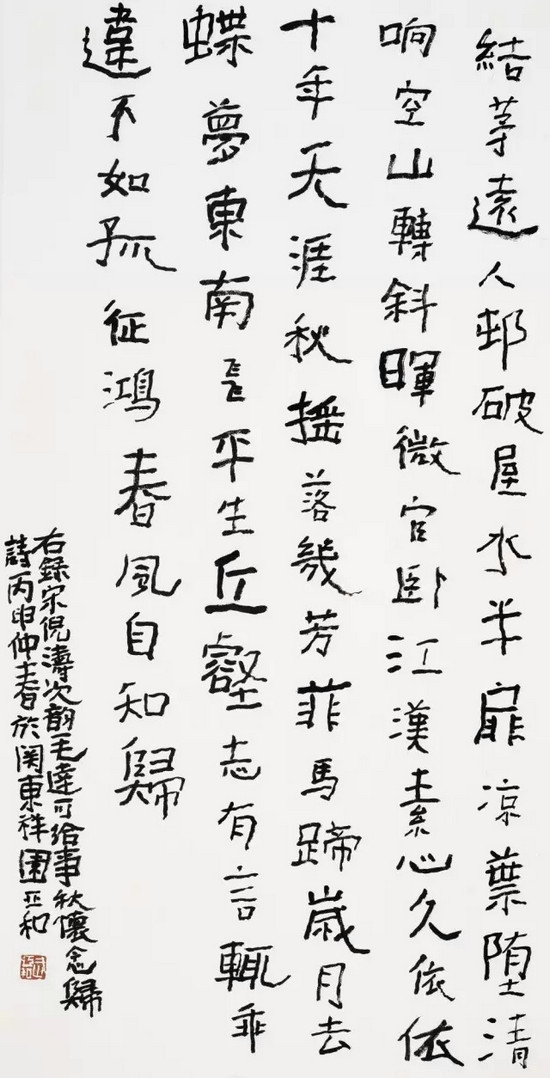 結茅遠人邨破屋水半扉凉葉堕清
响空山轉斜暉微官卧江漢素心久依依
十年天涯秋摇落幾芳菲馬蹄歳月去
蝶夢東南飛平生丘壑志有言輒乖
違不如孤征鴻春風自知歸
右録宋倪濤次韵毛達可给事秋懷念歸
詩丙申仲春於関東祥園亚和